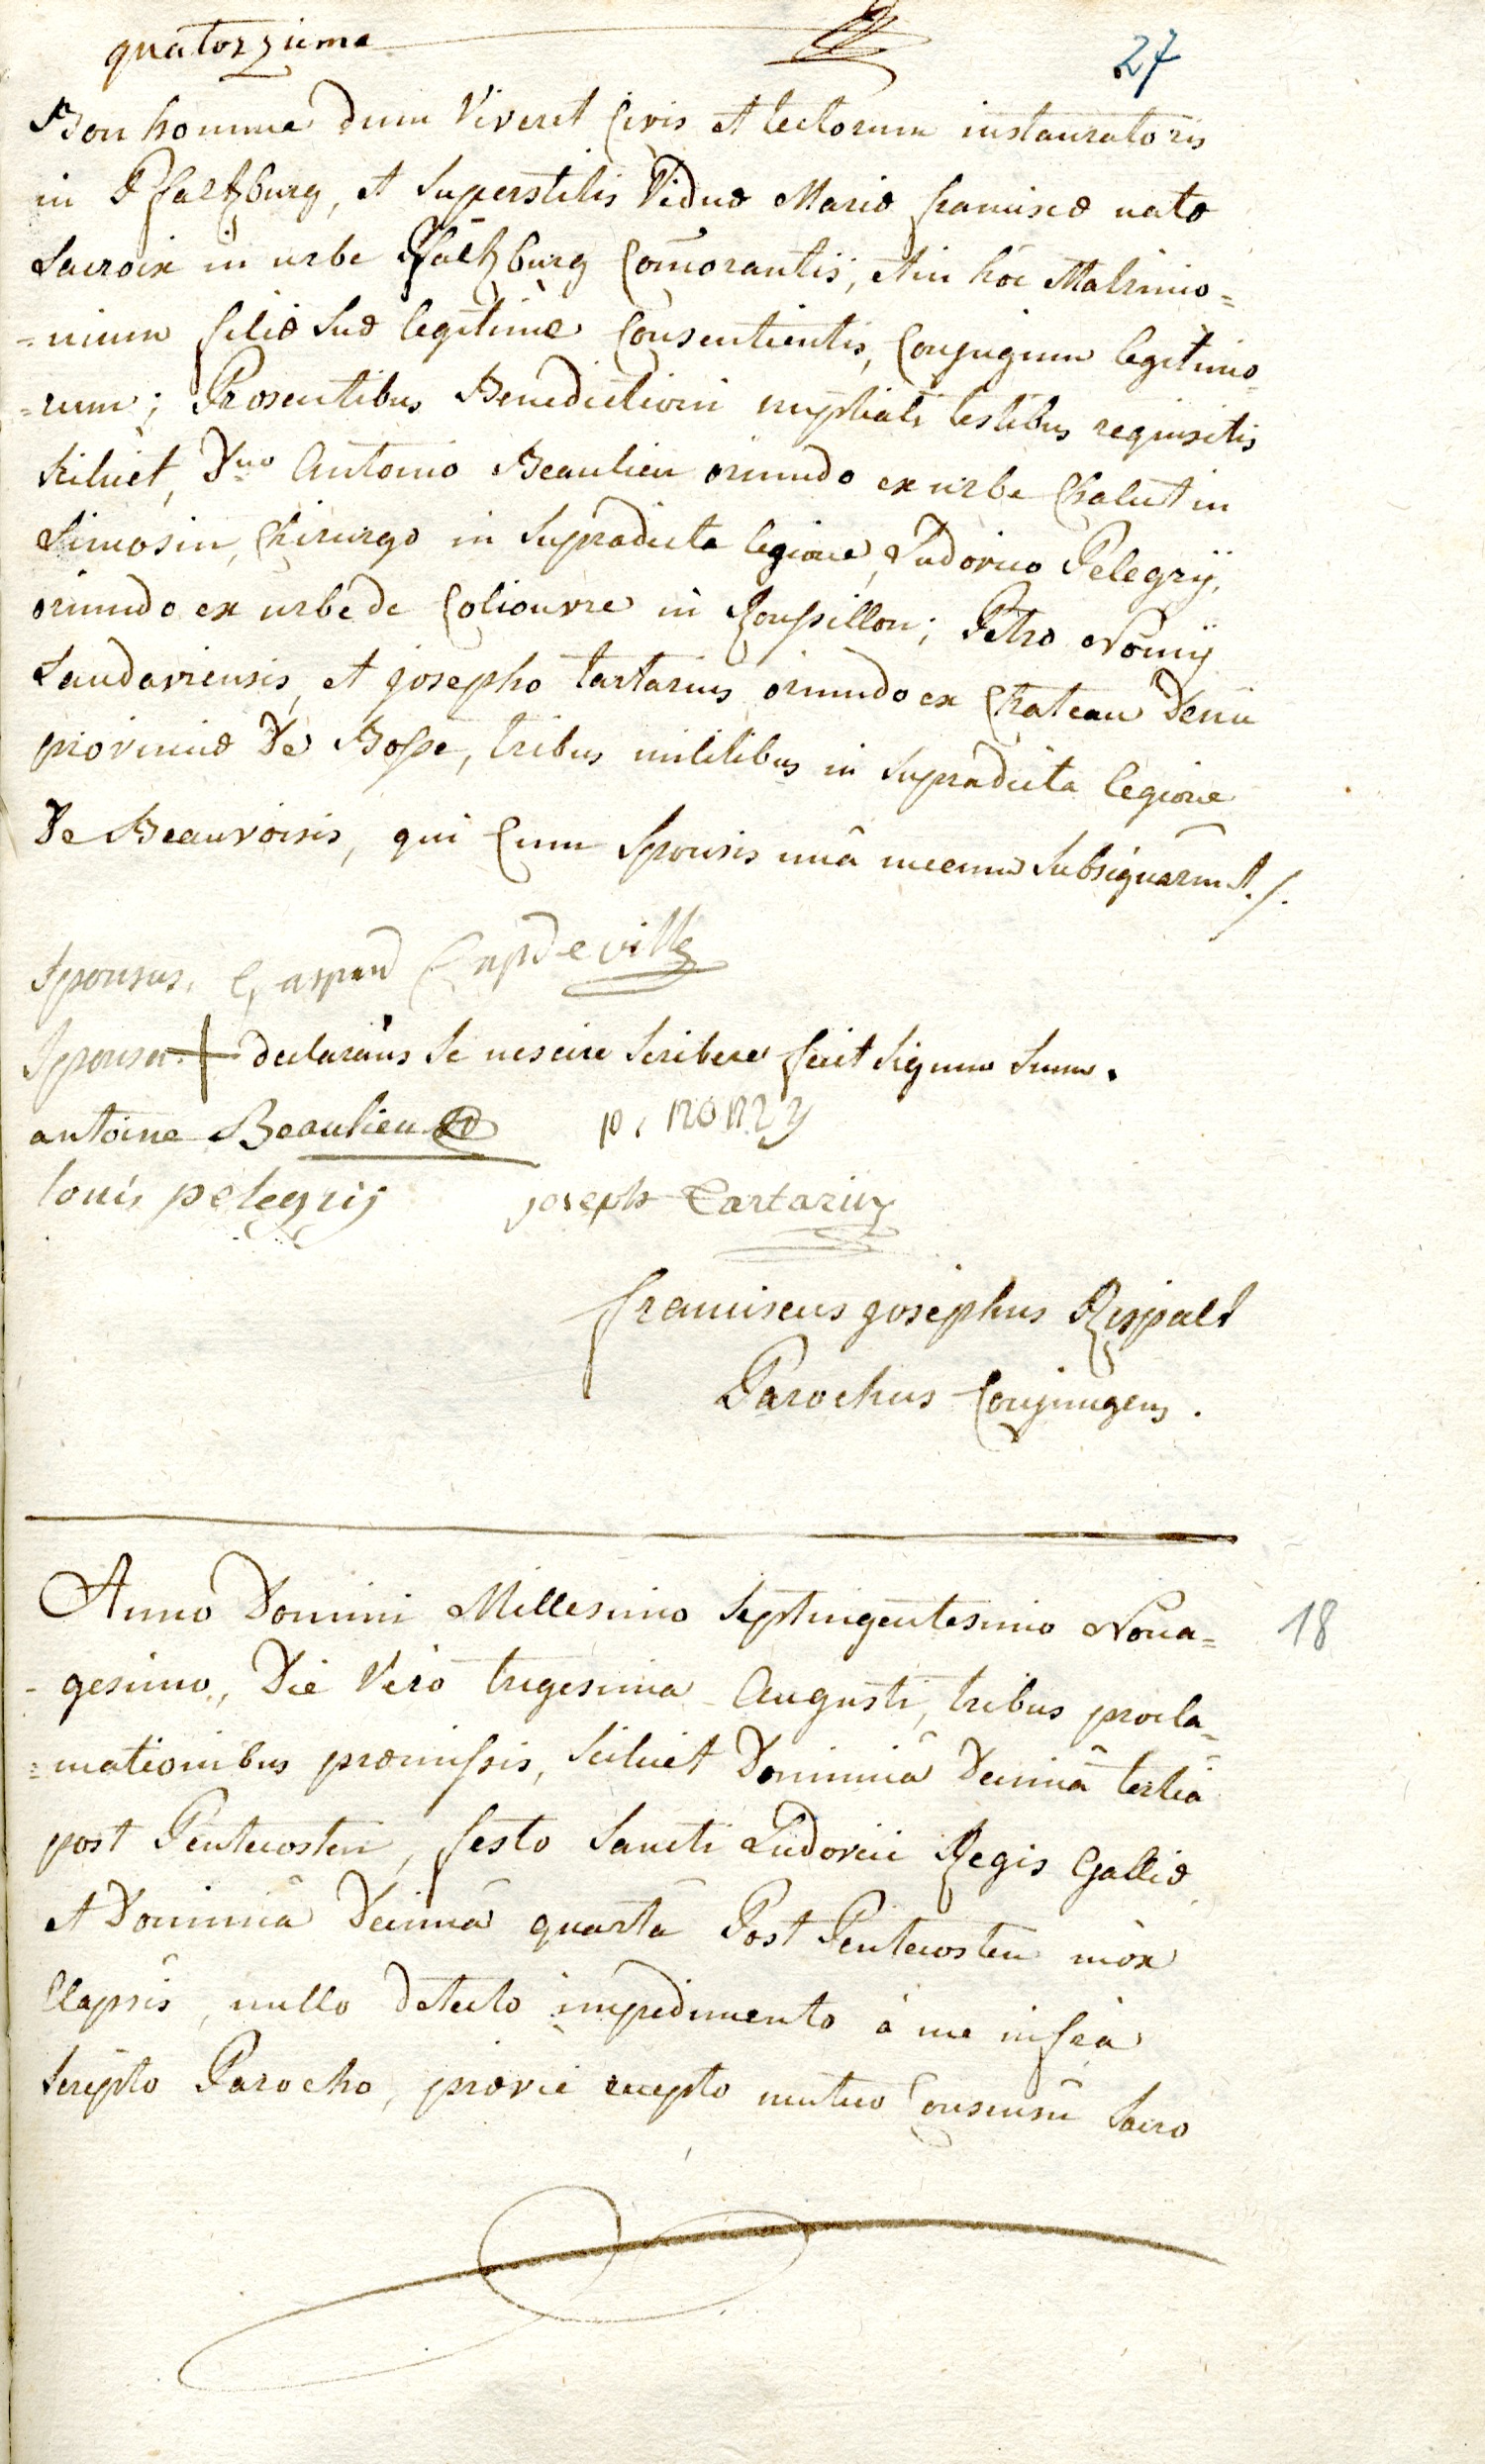 quatorzieme 27
Bonhomme dum Viveret Civis et tectorum instauratoris
in Pfaltzburg, et Superstitis Viduæ Mariæ franciscæ natæ
Lacroix in urbe Pfaltzburg Com̄orantis, et in hoc Matrimo=
=nium filiæ Suæ legitimè Consentientis, Conjugum legitimo=
=rum; Præsentibus Benedictioni nuptiali testibus requisitis
Scilicet, Dno Antonio Beaulieu oriundo ex urbe Chalut in
Limosin, Chirurgo in Supradicta legione, Ludovico Pelegrÿ,
oriundo ex urbe de Coliouvre in Roussillon; Petro Nomÿ
Landaviensis, et josepho tartarius oriundo ex Chateau Denu
provinciæ De Bosse, tribus militibus in Supradicta legione
De Beauvoisis, qui Cum Sponsis unâ mecum Subsignarunt./.
Sponsus. Gaspard Capdeville
Sponsa + declarans Se nescire Scribere fecit Signum Suum.
antoine Beaulieu p. nomy
louis pelegrij joseph tartarius
franciscus josephus Rispalt
Parochus Conjungens.
Anno Domini Millesimo Septingentesimo Nona= 18
- gesimo, Die Vero trigesima Augusti, tribus procla=
=mationibus præmissis, Scilicet Dominicâ Decimâ tertiâ
post Pentecosten, festo Sancti Ludovici Regis Galliæ
et Dominicâ Decimâ quartâ Post Pentecosten mox
Elapsis, nullo detecto impedimento à me infra
Scripto Parocho, prævie recepto mutuo Consensu Sacro